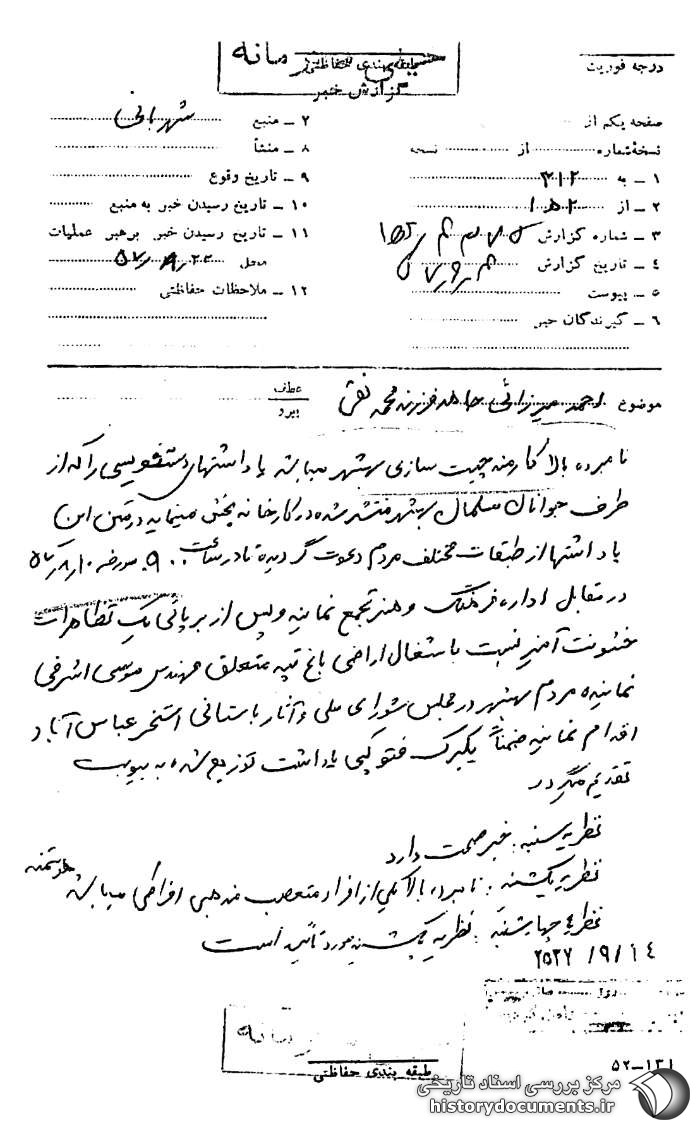 طبقه بندی حفاظتی
گزارش خبر
درجه فوریت
صفحه یکم از
نسخهٔ شماره از نسخه
۱ ـ به ۳۱۲
۲ ـ از
۳ ـ شماره گزارش
۴ ـ تاریخ گزارش
۵ ـ پیوست
۶ ـ گیرندگان خبر
۷ ـ منبع شهربانی
۸ ـ منشأ
۹ ـ تاریخ وقوع
۱۰ ـ تاریخ رسیدن خبر به منبع
۱۱ ـ تاریخ رسیدن خبر برهبر عملیات
محل
۱۲ ـ ملاحظات حفاظتی
موضوع احمد میرزائی فرزند محمد نقی
عطف
پیرو
نامبرده بالا کارمند چیت سازی بهشهر میباشد یادداشتهای دستنویسی را که از
طرف جوانان مسلمان بهشهر منتشر شده در کارخانه پخش مینماید در متن این
یادداشتها از طبقات مختلف مردم دعوت گردیده تا در ساعت ۹۰۰ مورخه
در مقابل اداره فرهنگ و هنر تجمع نمایند و پس از برپائی یک تظاهرات
خشونت آمیز نسبت باشغال اراضی باغ تپه متعلق مهندس موسی اشرفی
نماینده مردم بهشهر در مجلس شورای ملی و آثار باستانی استخر عباس آباد
اقدام نمایند ضمناً یکبرگ فتوکپی یادداشت توزیع شده به پیوست
تقدیم میگردد
نظریه سه‌شنبه : خبر صحت دارد
نظریه یکشنبه : نامبرده بالا یکی از افراد متعصب مذهبی افراطی میباشد
نظریه چهارشنبه : نظریه یکشنبه مورد تأئید است
۲۵۳۷ /۹/۱۴
طبقه بندی حفاظتی
۵۲ــ۱۳۱
مرکز بررسی اسناد تاریخی
historydocuments.ir